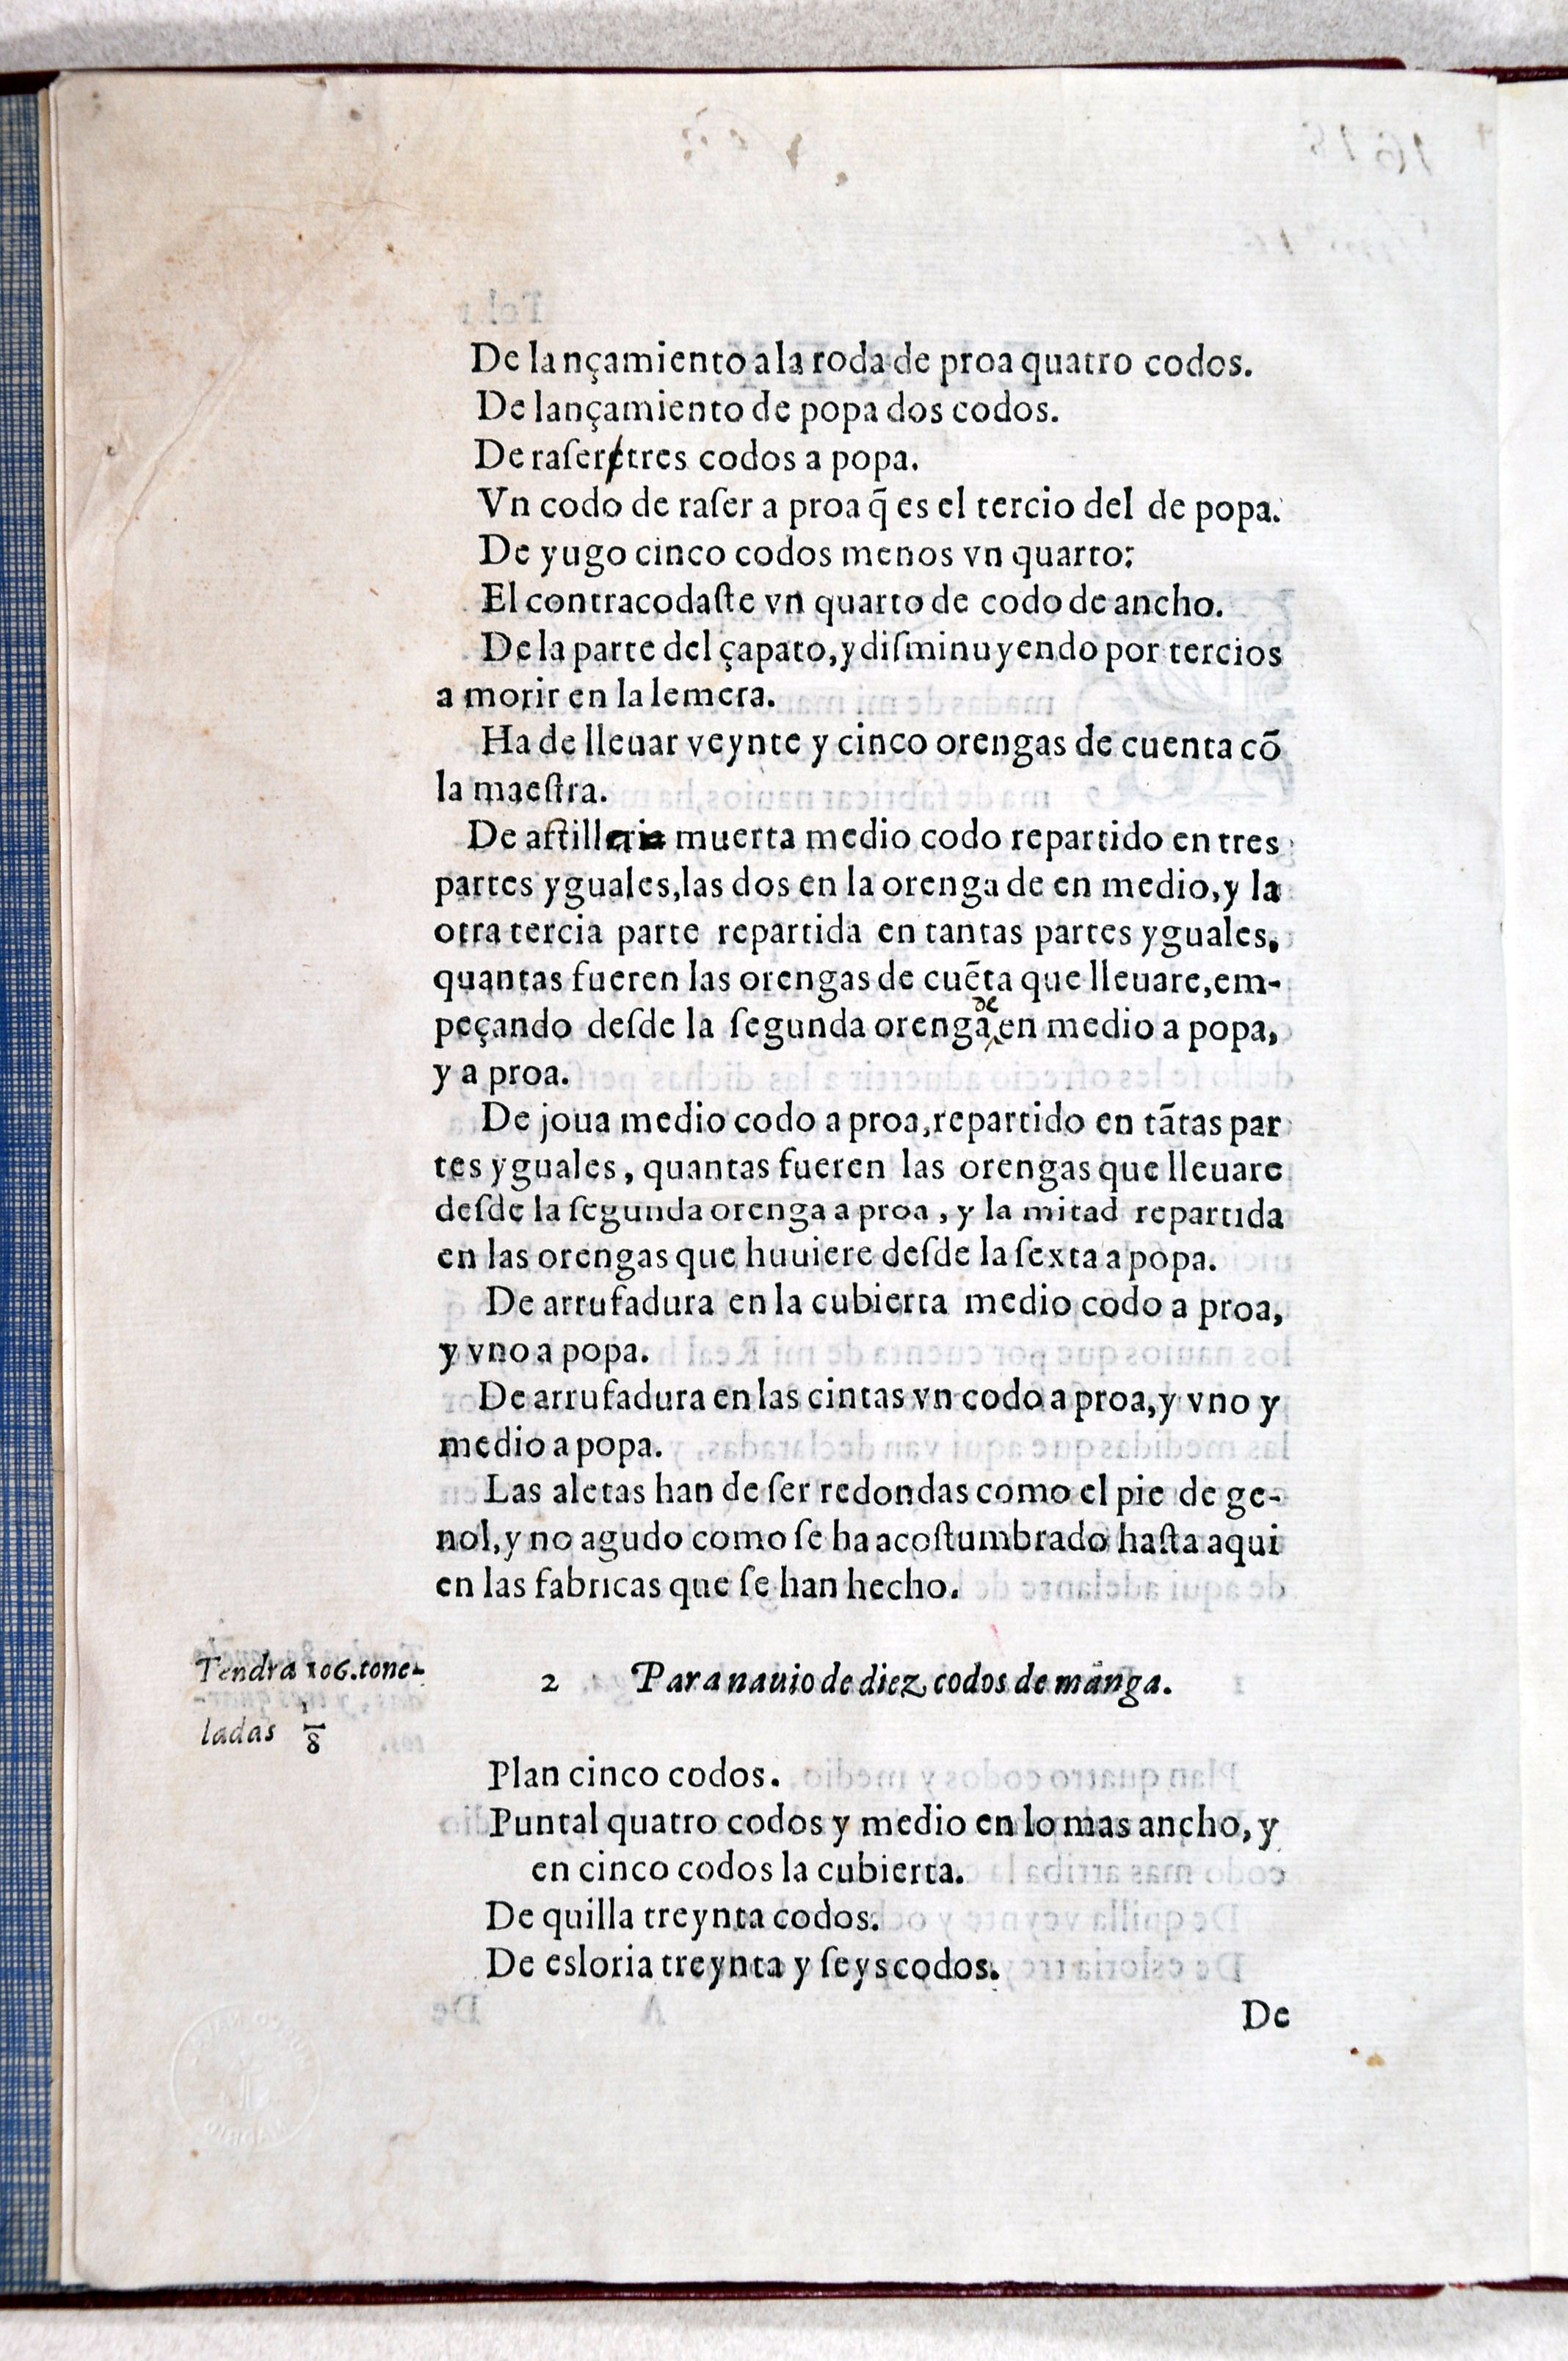 De lançamiento a la roda de proa quatro codos.
De lançamiento de popa dos codos.
De raſer tres codos a popa.
Vn codo de raſer a proa q̃ es el tercio del de popa.
De yugo cinco codos menos vn quarto:
El contracodaſte vn quarto de codo de ancho.
De la parte del çapato, y diſminuyendo por tercios
a morir en la lemera.
Ha de lleuar veynte y cinco orengas de cuenta cõ
la maeſtra.
De aſtilla muerta medio codo repartido en tres
partes yguales, las dos en la orenga de en medio, y la
otra tercia parte repartida en tantas partes yguales,
quantas fueren las orengas de cuẽta que lleuare, em-
peçando deſde la ſegunda orenga de en medio a popa,
y a proa.
De joua medio codo a proa, repartido en tãtas par
tes yguales, quantas fueren las orengas que lleuare
deſde la ſegunda orenga a proa, y la mitad repartida
en las orengas que huuiere deſde la ſexta a popa.
De arrufadura en la cubierta medio codo a proa,
y vno a popa.
De arrufadura en las cintas vn codo a proa, y vno y
medio a popa.
Las aletas han de ſer redondas como el pie de ge-
nol, y no agudo como ſe ha acoſtumbrado haſta aqui
en las fabricas que ſe han hecho.
Tendra 106. tone-
ladas 1/8
2 Para nauio de diez codos de manga.
Plan cinco codos.
Puntal quatro codos y medio en lo mas ancho, y
en cinco codos la cubierta.
De quilla treynta codos.
De esloria treynta y ſeys codos.
De